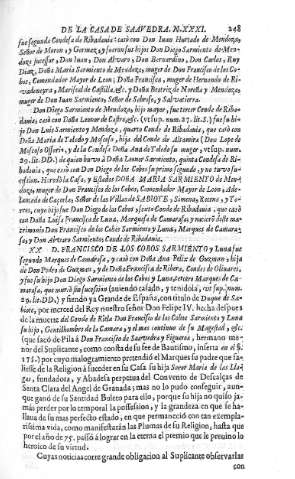 DE LA CASA DE SAAVEDRA. N. XXXI. 248
fue segunda Condesa de Ribadania: casò con Don Iuan Hurtado de Mendoza,
Señor de Moron, y Gormaz, y fueron sus hijos Don Diego Sarmiento de Men-
doza sucessor, Don Iuan, Don Alvaro, Don Bernardino, Don Carlos, Ruy
Diaz, Doña Maria Sarmiento de Mendoza, muger de Don Francisco de los Co-
bos, Comendador Mayor de Leon, Doña Francisca, muger de Hernando de Ri-
vadeneyra, Mariscal de Castilla, &c. y Doña Beatriz de Noreña y Mendoza
muger de Don Iuan Sarmiento, Señor de Salinas, y Salvatierra.
Don Diego Sarmiento de Mendoza, hijo mayor, fue tercer Conde de Riba-
dania, casò con Doña Leonor de Castro, &c. (vt sup. num. 27. lit. S.) fue su hi-
jo Don Luis Sarmiento y Mendoza, quarto Conde de Ribadania, que casò con
Doña Maria de Toledo y Moscoso, hija del Conde de Altamira (Don Lope de
Moscoso Ossorio, y de la Condesa Doña Ana de Toledo su muger, vt sup. num.
29. lit. DD.) de quien huvo à Doña Leonor Sarmiento, quinta Condesa de Ri-
badania, que casò con Don Diego de los Cobos su primo segundo, y no tuvo su-
cession. Heredò la Casa, y Estados DOÑA MARIA SARMIENTO de Men-
doza, muger de Don Francisco de los Cobos, Comendador Mayor de Leon, Ade-
lantado de Cazorla, Señor de las Villas de SABIOTE, Ximena, Recena, y Tor-
res, cuyo hijo fue Don Diego de los Cobos, sexto Conde de Ribadania, que casò
con Doña Luisa Francisca de Luna, Marquesa de Camarasa, y nació deste ma-
trimonio Don Francisco de los Cobos Sarmiento y Luna, Marques de Camara-
sa, y Don Alvaro Sarmiento, Conde de Ribadania.
XX D. FRANCISCO DE LOS COBOS SARMIENTO y Luna fue
segundo Marques de Camarasa, y casò con Doña Ana Feliz de Guzman, hija
de Don Pedro de Guzman, y de Doña Francisca de Ribera, Condes de Olivares,
y fue su hijo Don Diego Sarmiento de los Cobos y Luna, tercero Marques de Ca-
marasa, que murió sin sucession (aviendo casado, y tenidola, vt sup. num.
29. lit. DD.) y siendo ya Grande de España, con titulo de Duque de Sa-
biote, por merced del Rey nuestro señor Don Felipe IV. hecha despues
de la muerte del Conde de Ricla Don Francisco de los Cobos Sarmiento y Luna
su hijo, Gentilhombre de la Camara, y el mas continuo de su Magestad, &c.
(que sacò de Pila à Don Francisco de Saavedra y Figueroa, hermano ma-
yor del Suplicante, como consta de su fee de Bautismo, inserta en el §.
175.) por cuyo malogramiento pretendió el Marques su padre que sa-
liesse de la Religion à suceder en su Casa su hija Soror Maria de las Lla-
gas, fundadora, y Abadesa perpetua del Convento de Descalças de
Santa Clara del Angel de Granada; mas no lo pudo conseguir, aun-
que ganó de su Santidad Buleto para ello, porque su hija no quiso ja-
màs perder por lo temporal la possession, y la grandeza en que se ha-
llava de su mas perfecto estado, en que permaneciò con tan exempla-
rissima vida, como manifestarán las Plumas de su Religion, hasta que
por el año de 75. passò à lograr en la eterna el premio que le previno lo
heroico de su virtud.
Cuyas noticias corre grande obligacion al Suplicante observarlas
con